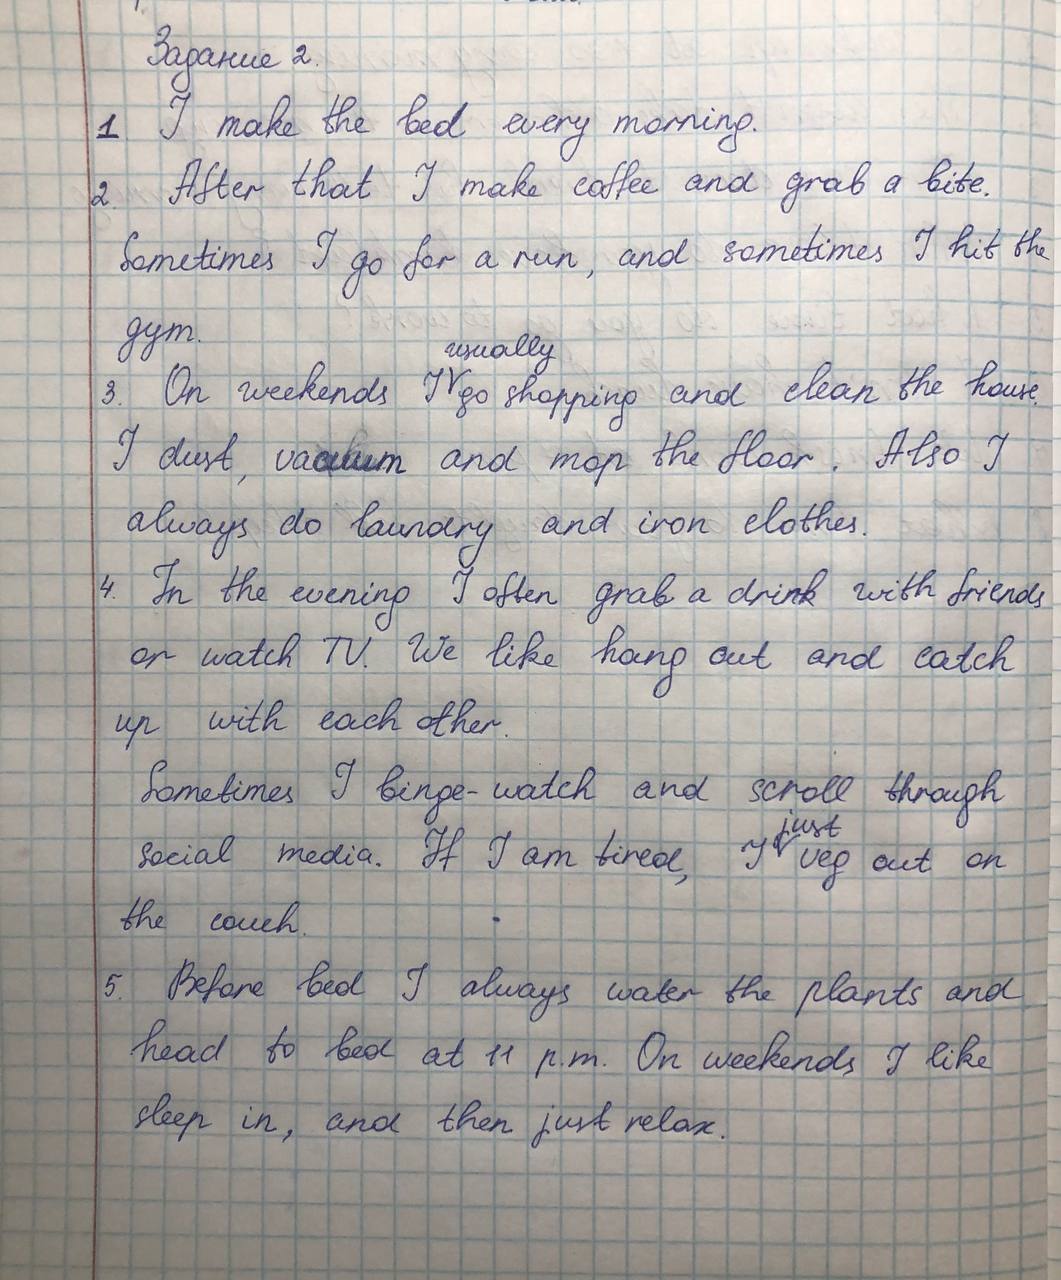 Задание 2.
1 I make the bed every morning.
2. After that I make coffee and grab a bite.
Sometimes I go for a run, and sometimes I hit the
gym.
usually
3. On weekends I go shopping and clean the house.
I dust, vacuum and mop the floor. Also I
always do laundry and iron clothes.
4. In the evening I often grab a drink with friends
or watch TV. We like hang out and catch
up with each other.
Sometimes I binge-watch and scroll through
just
social media. If I am tired, I veg out on
the couch.
5. Before bed I always water the plants and
head to bed at 11 p.m. On weekends I like
sleep in, and then just relax.